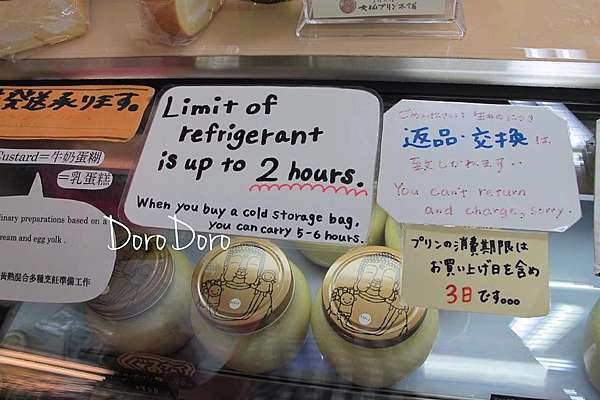 大仏プリン本舗
発送承ります。
Limit of
refrigerant
is up to 2 hours.
When you buy a cold storage bag,
you can carry 5-6 hours.
ustard＝牛奶蛋糊
＝乳蛋糕
inary preparations based on a
ream and egg yolk .
黃熟混合多種烹飪準備工作
ごめんなさい
返品・交換は
致しかねます・・
You can't return
and charge, sorry.
プリンの消費期限は
お買い上げ日を含め
3日です。。。
DoroDoro